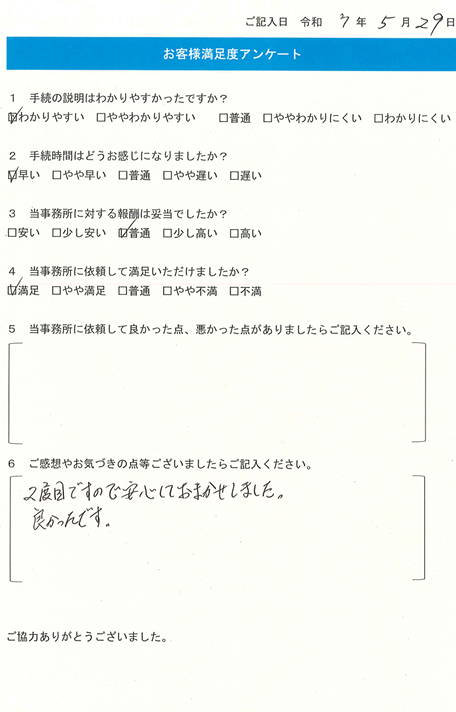 ご記入日 令和 7 年 5 月 29 日
お客様満足度アンケート
1 手続の説明はわかりやすかったですか？
☑わかりやすい □ややわかりやすい □普通 □ややわかりにくい □わかりにくい
2 手続時間はどうお感じになりましたか？
☑早い □やや早い □普通 □やや遅い □遅い
3 当事務所に対する報酬は妥当でしたか？
□安い □少し安い ☑普通 □少し高い □高い
4 当事務所に依頼して満足いただけましたか？
☑満足 □やや満足 □普通 □やや不満 □不満
5 当事務所に依頼して良かった点、悪かった点がありましたらご記入ください。
6 ご感想やお気づきの点等ございましたらご記入ください。
2度目ですので安心しておまかせしました。
良かったです。
ご協力ありがとうございました。